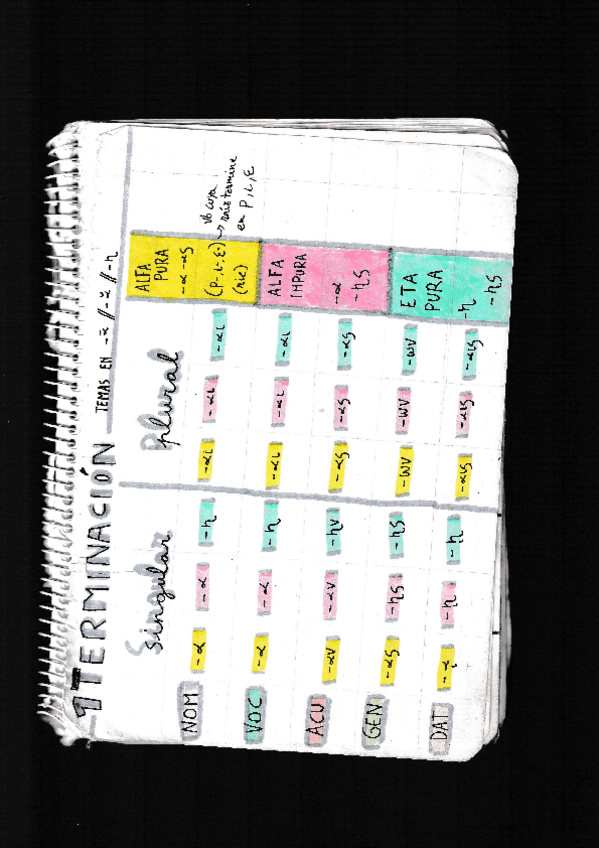 TERMINACIÓN TEMAS EN -ᾱ // -ᾰ // -η
Singular Plural
NOM -α -α -η -αι -αι -αι
VOC -α -α -η -αι -αι -αι
ACU -αν -αν -ην -ας -ας -ας
GEN -ας -ης -ης -ων -ων -ων
DAT -ᾳ -ῃ -ῃ -αις -αις -αις
ALFA
PURA
-α -ας
(ρ-ι-ε) →
cuya
raíz termine
en ρ, ι, ε
ALFA
IMPURA
-α
-ης
ETA
PURA
-η
-ης